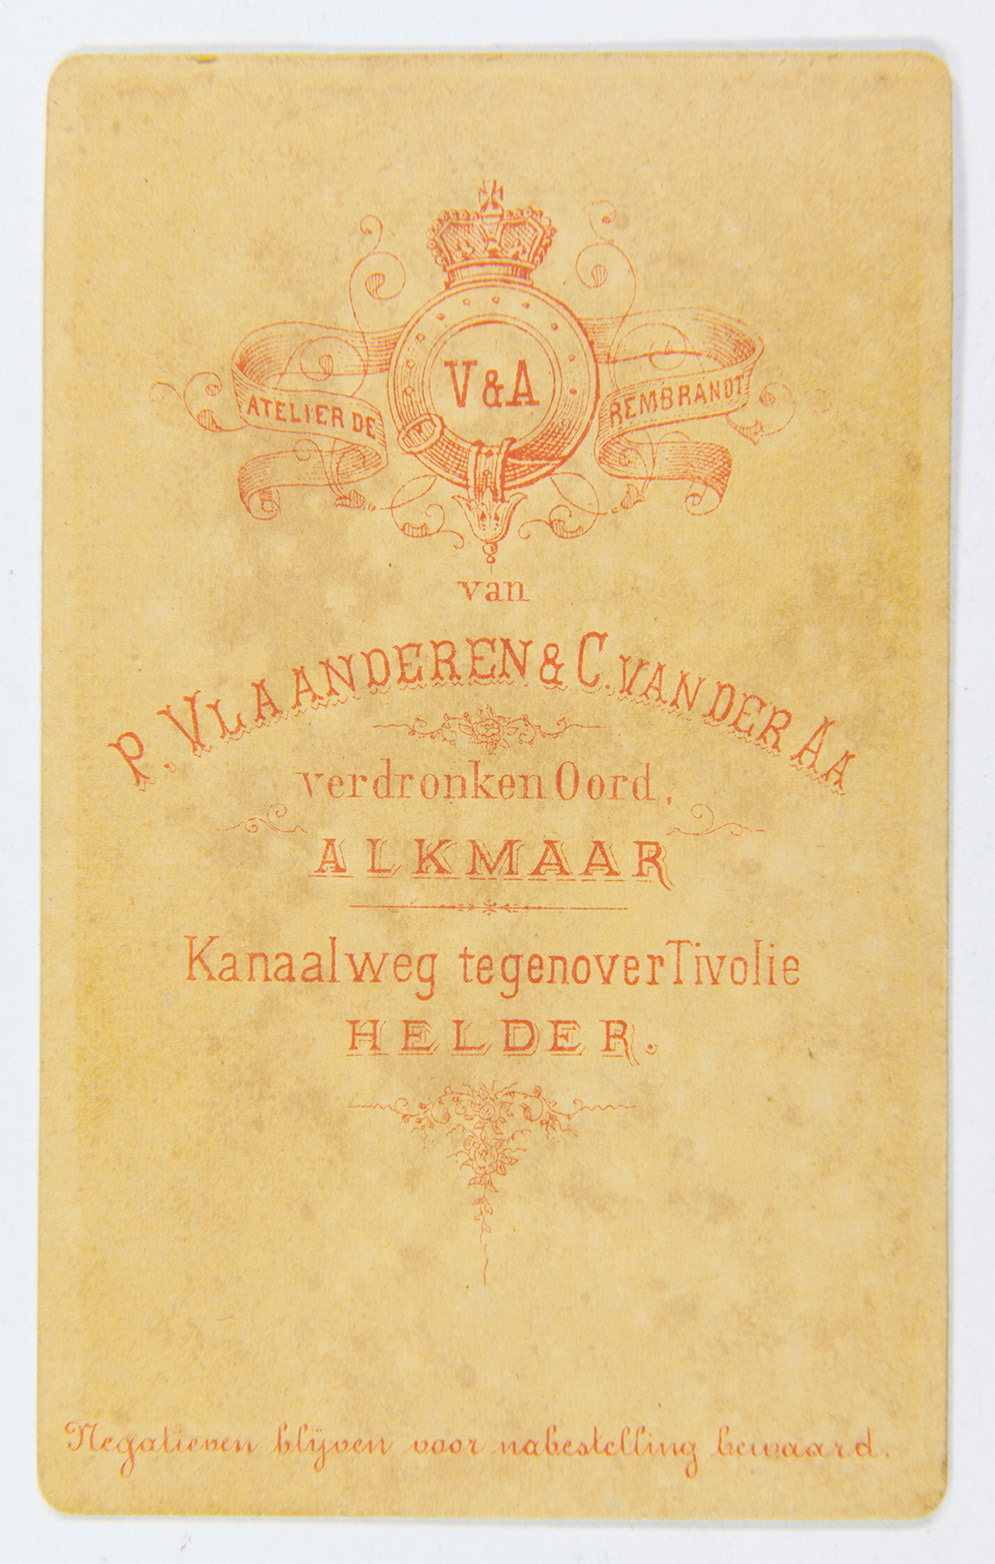 V & A
ATELIER DE REMBRANDT
van
P. VLAANDEREN & C. VAN DER AA
verdronken Oord,
ALKMAAR
Kanaalweg tegenover Tivolie
HELDER.
Negatieven blijven voor nabestelling bewaard.